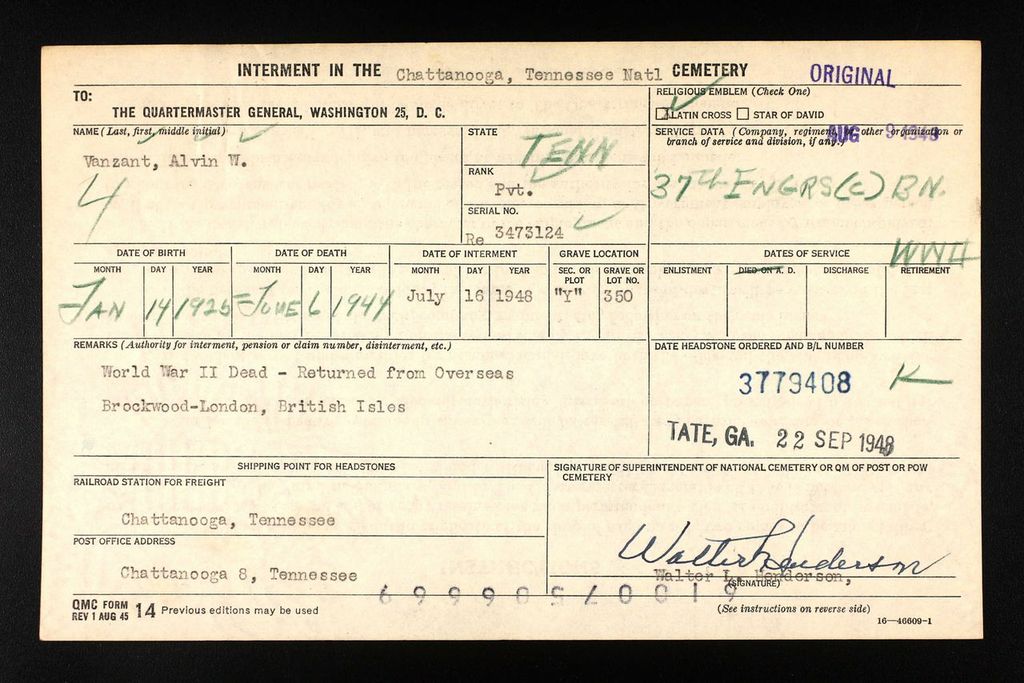 INTERMENT IN THE Chattanooga, Tennessee Natl CEMETERY
ORIGINAL
TO:
THE QUARTERMASTER GENERAL, WASHINGTON 25, D. C.
RELIGIOUS EMBLEM (Check One)
LATIN CROSS STAR OF DAVID
NAME (Last, first, middle initial)
Vanzant, Alvin W.
4
STATE
TENN
RANK
Pvt.
SERIAL NO.
Re 3473124
SERVICE DATA (Company, regiment, or other organization or
branch of service and division, if any.)
AUG 9 1948
37th ENGRS(C) BN.
DATE OF BIRTH DATE OF DEATH DATE OF INTERMENT GRAVE LOCATION DATES OF SERVICE WWII
MONTH DAY YEAR MONTH DAY YEAR MONTH DAY YEAR SEC. OR PLOT GRAVE OR LOT NO. ENLISTMENT DIED ON A. D. DISCHARGE RETIREMENT
JAN 14 1925 JUNE 6 1944 July 16 1948 "Y" 350
REMARKS (Authority for interment, pension or claim number, disinterment, etc.)
World War II Dead - Returned from Overseas
Brockwood-London, British Isles
DATE HEADSTONE ORDERED AND B/L NUMBER
3779408 K
TATE, GA. 22 SEP 1948
SHIPPING POINT FOR HEADSTONES
RAILROAD STATION FOR FREIGHT
Chattanooga, Tennessee
POST OFFICE ADDRESS
Chattanooga 8, Tennessee
SIGNATURE OF SUPERINTENDENT OF NATIONAL CEMETERY OR QM OF POST OR POW
CEMETERY
Walter L Henderson
Walter L. Henderson,
(SIGNATURE)
QMC FORM
REV 1 AUG 45 14 Previous editions may be used
(See instructions on reverse side)
16—46609-1